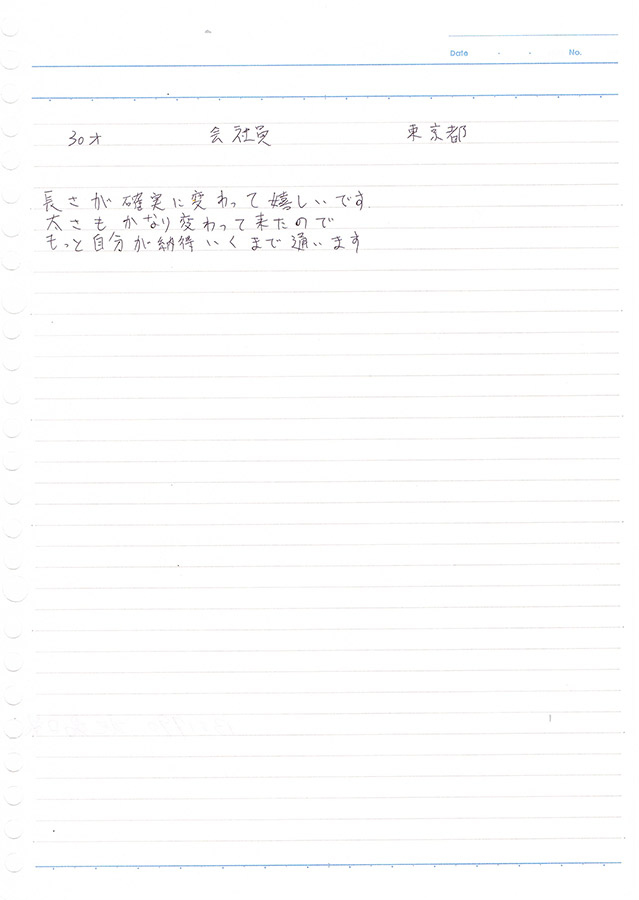 Date ・ ・ No.
30才 会社員 東京都
長さが確実に変わって嬉しいです.
太さもかなり変わって来たので
もっと自分が納得いくまで通います